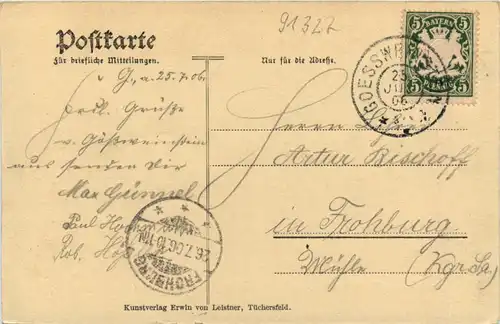 91322
Postkarte
Für briefliche Mitteilungen.
Nur für die Adresse.
BAYERN
5 5
5 5
PFENNIG
GOESSW
25
JUL
06
G., a. 25.7.06
Frdl. Grüße
v. Gößweinstein
aus senden Dir
Max Günnel
Paul
Rob.
Herrn
Artur Bischoff
in Frohburg
Mühle (Kgr. Sa.)
FROHBURG
26.7.06.
Kunstverlag Erwin von Leistner, Tüchersfeld.